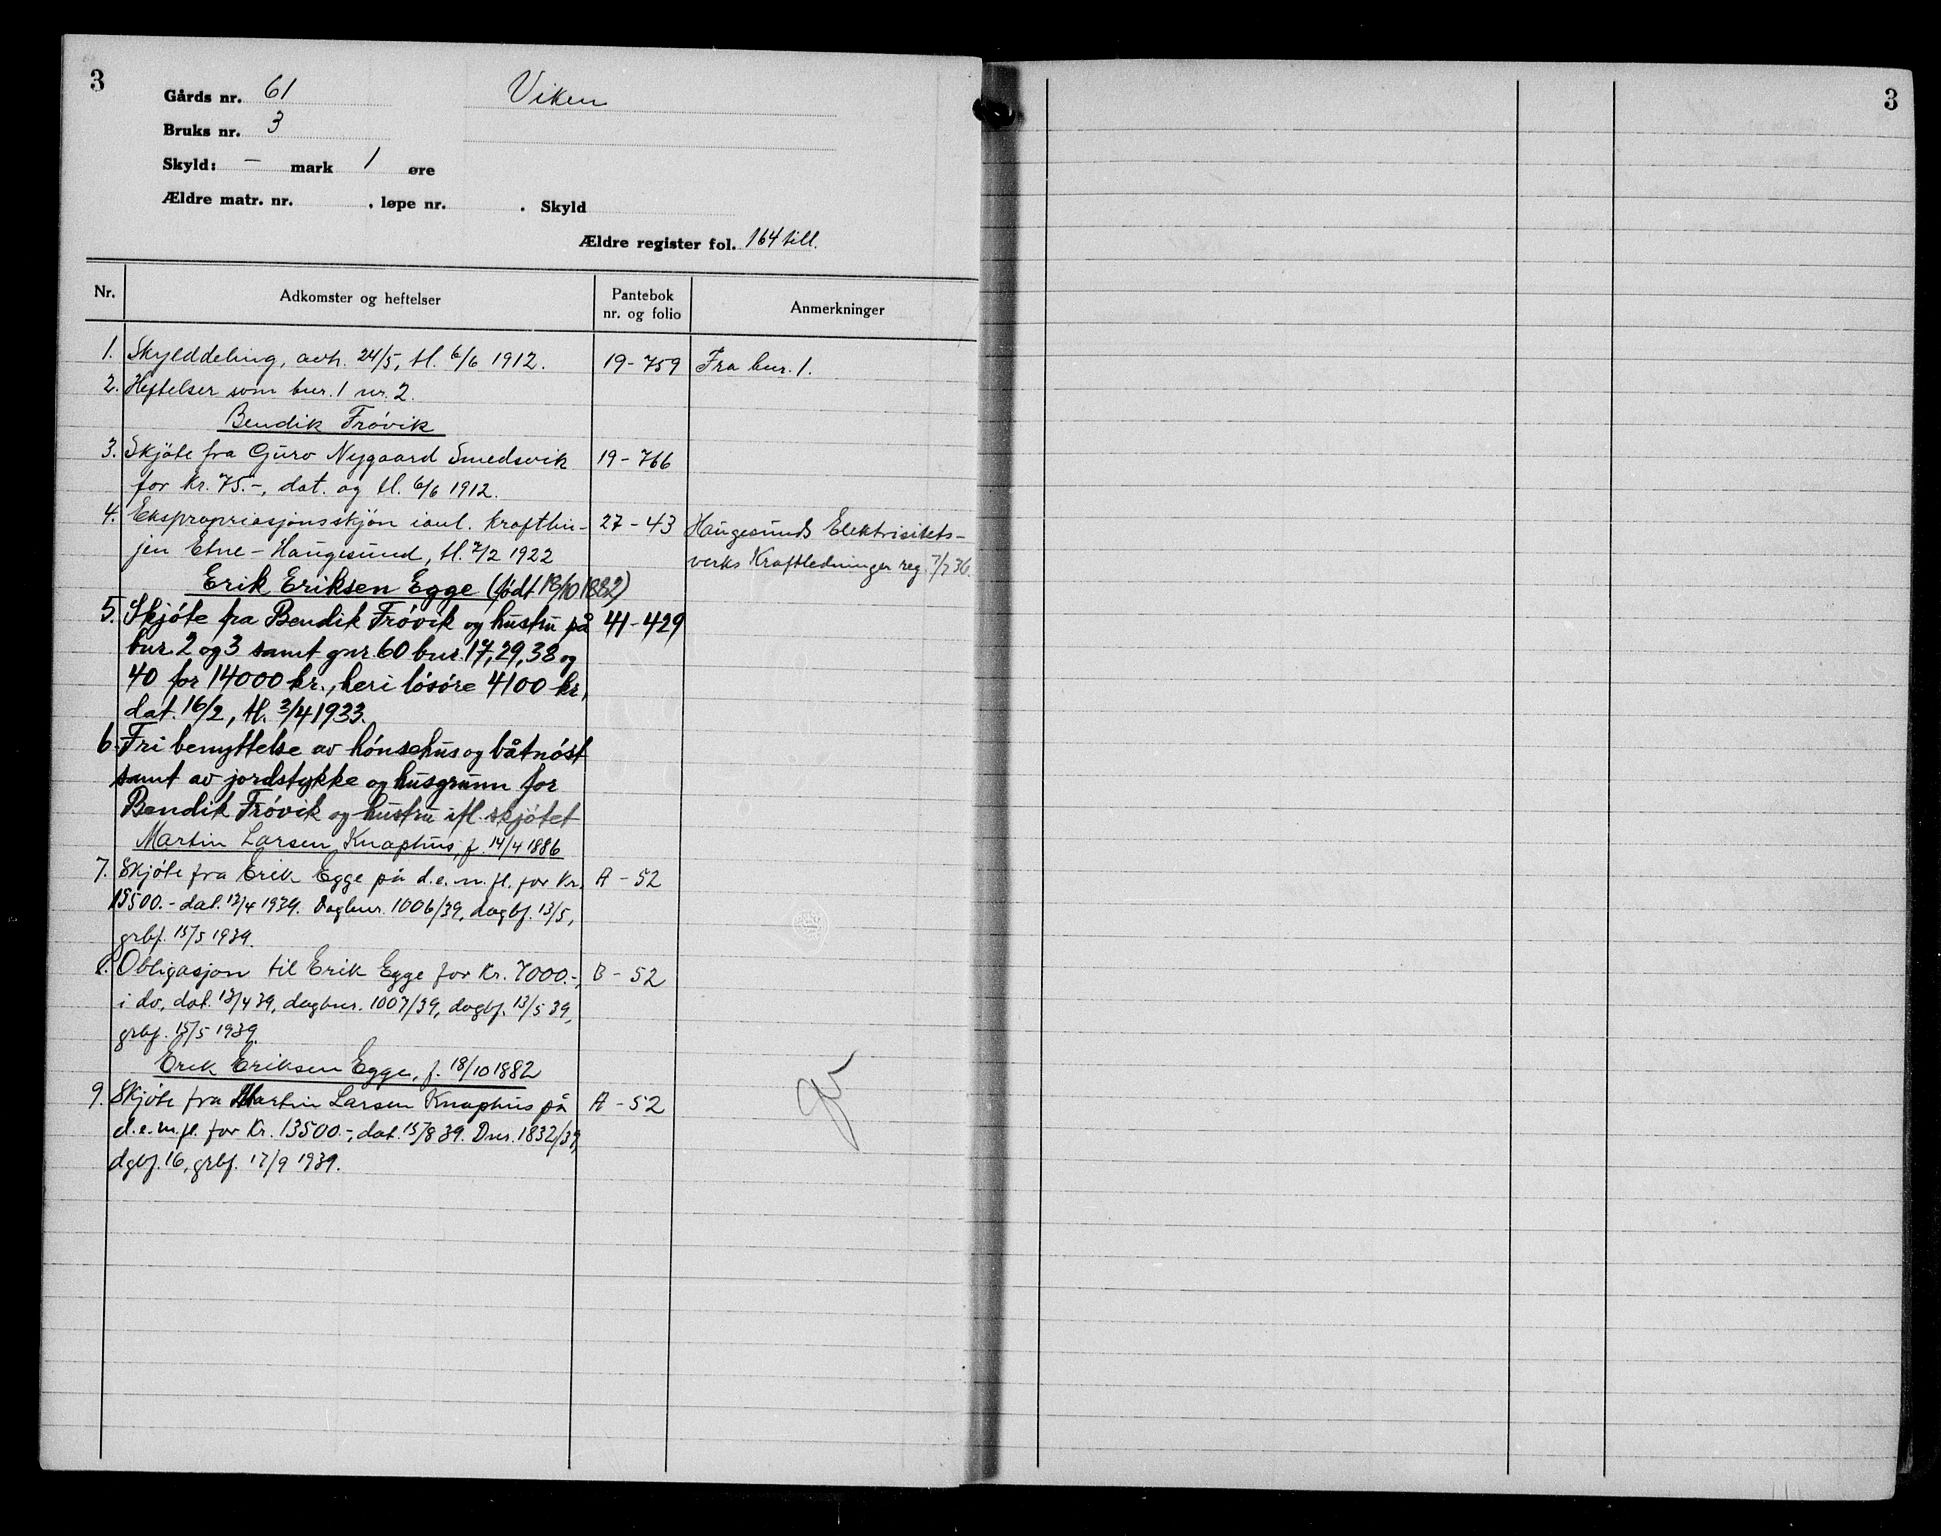 3
Gårds nr. 61 Viken
Bruks nr. 3
Skyld: – mark 1 øre
Ældre matr. nr. , løpe nr. . Skyld
Ældre register fol. 164 till.
Nr. Adkomster og heftelser Pantebok nr. og folio Anmerkninger
1. Skylddeling, avh. 24/5, tl. 6/6 1912. 19-759 Fra bnr. 1.
2. Heftelser som bnr. 1 nr. 2.
Bendik Frövik
3. Skjöte fra Guro Nygaard Smedsvik 19-766
for kr. 75.-, dat. og tl. 6/6 1912.
4. Ekspropriasjonsskjön ianl. kraftlin- 27-43 Haugesunds Elektrisitets-
jen Etne-Haugesund, tl. 7/2 1922 verks Kraftledninger reg. 7/7 36.
Erik Eriksen Egge (født 18/10 1882)
5. Skjöte fra Bendik Frövik og hustru på 41-429
bnr. 2 og 3 samt gnr. 60 bnr. 17, 29, 38 og
40 for 14000 kr., heri lösöre 4100 kr,
dat. 16/2, tl. 3/4 1933.
6. Fri benyttelse av hönsehus og båtnöst
samt av jordstykke og husgrunn for
Bendik Frövik og hustru ifl. skjötet
Martin Larsen Knaphus, f. 14/4 1886
7. Skjöte fra Erik Egge på d.e.m.fl. for kr. A-52
13500.- dat. 12/4 1939. Dagbnr. 1006/39, dagbf. 13/5,
grbf. 15/5 1939.
8. Obligasjon til Erik Egge for kr. 7000.-, B-52
i do, dat. 12/4 39, dagbnr. 1007/39, dagbf. 13/5 39,
grbf. 15/5 1939.
Erik Eriksen Egge, f. 18/10 1882
9. Skjöte fra Martin Larsen Knaphus på A-52
d.e.m.fl. for kr. 13500.-, dat. 15/8 39. Dnr. 1832/39,
dgbf. 16, grbf. 17/9 1939.
3